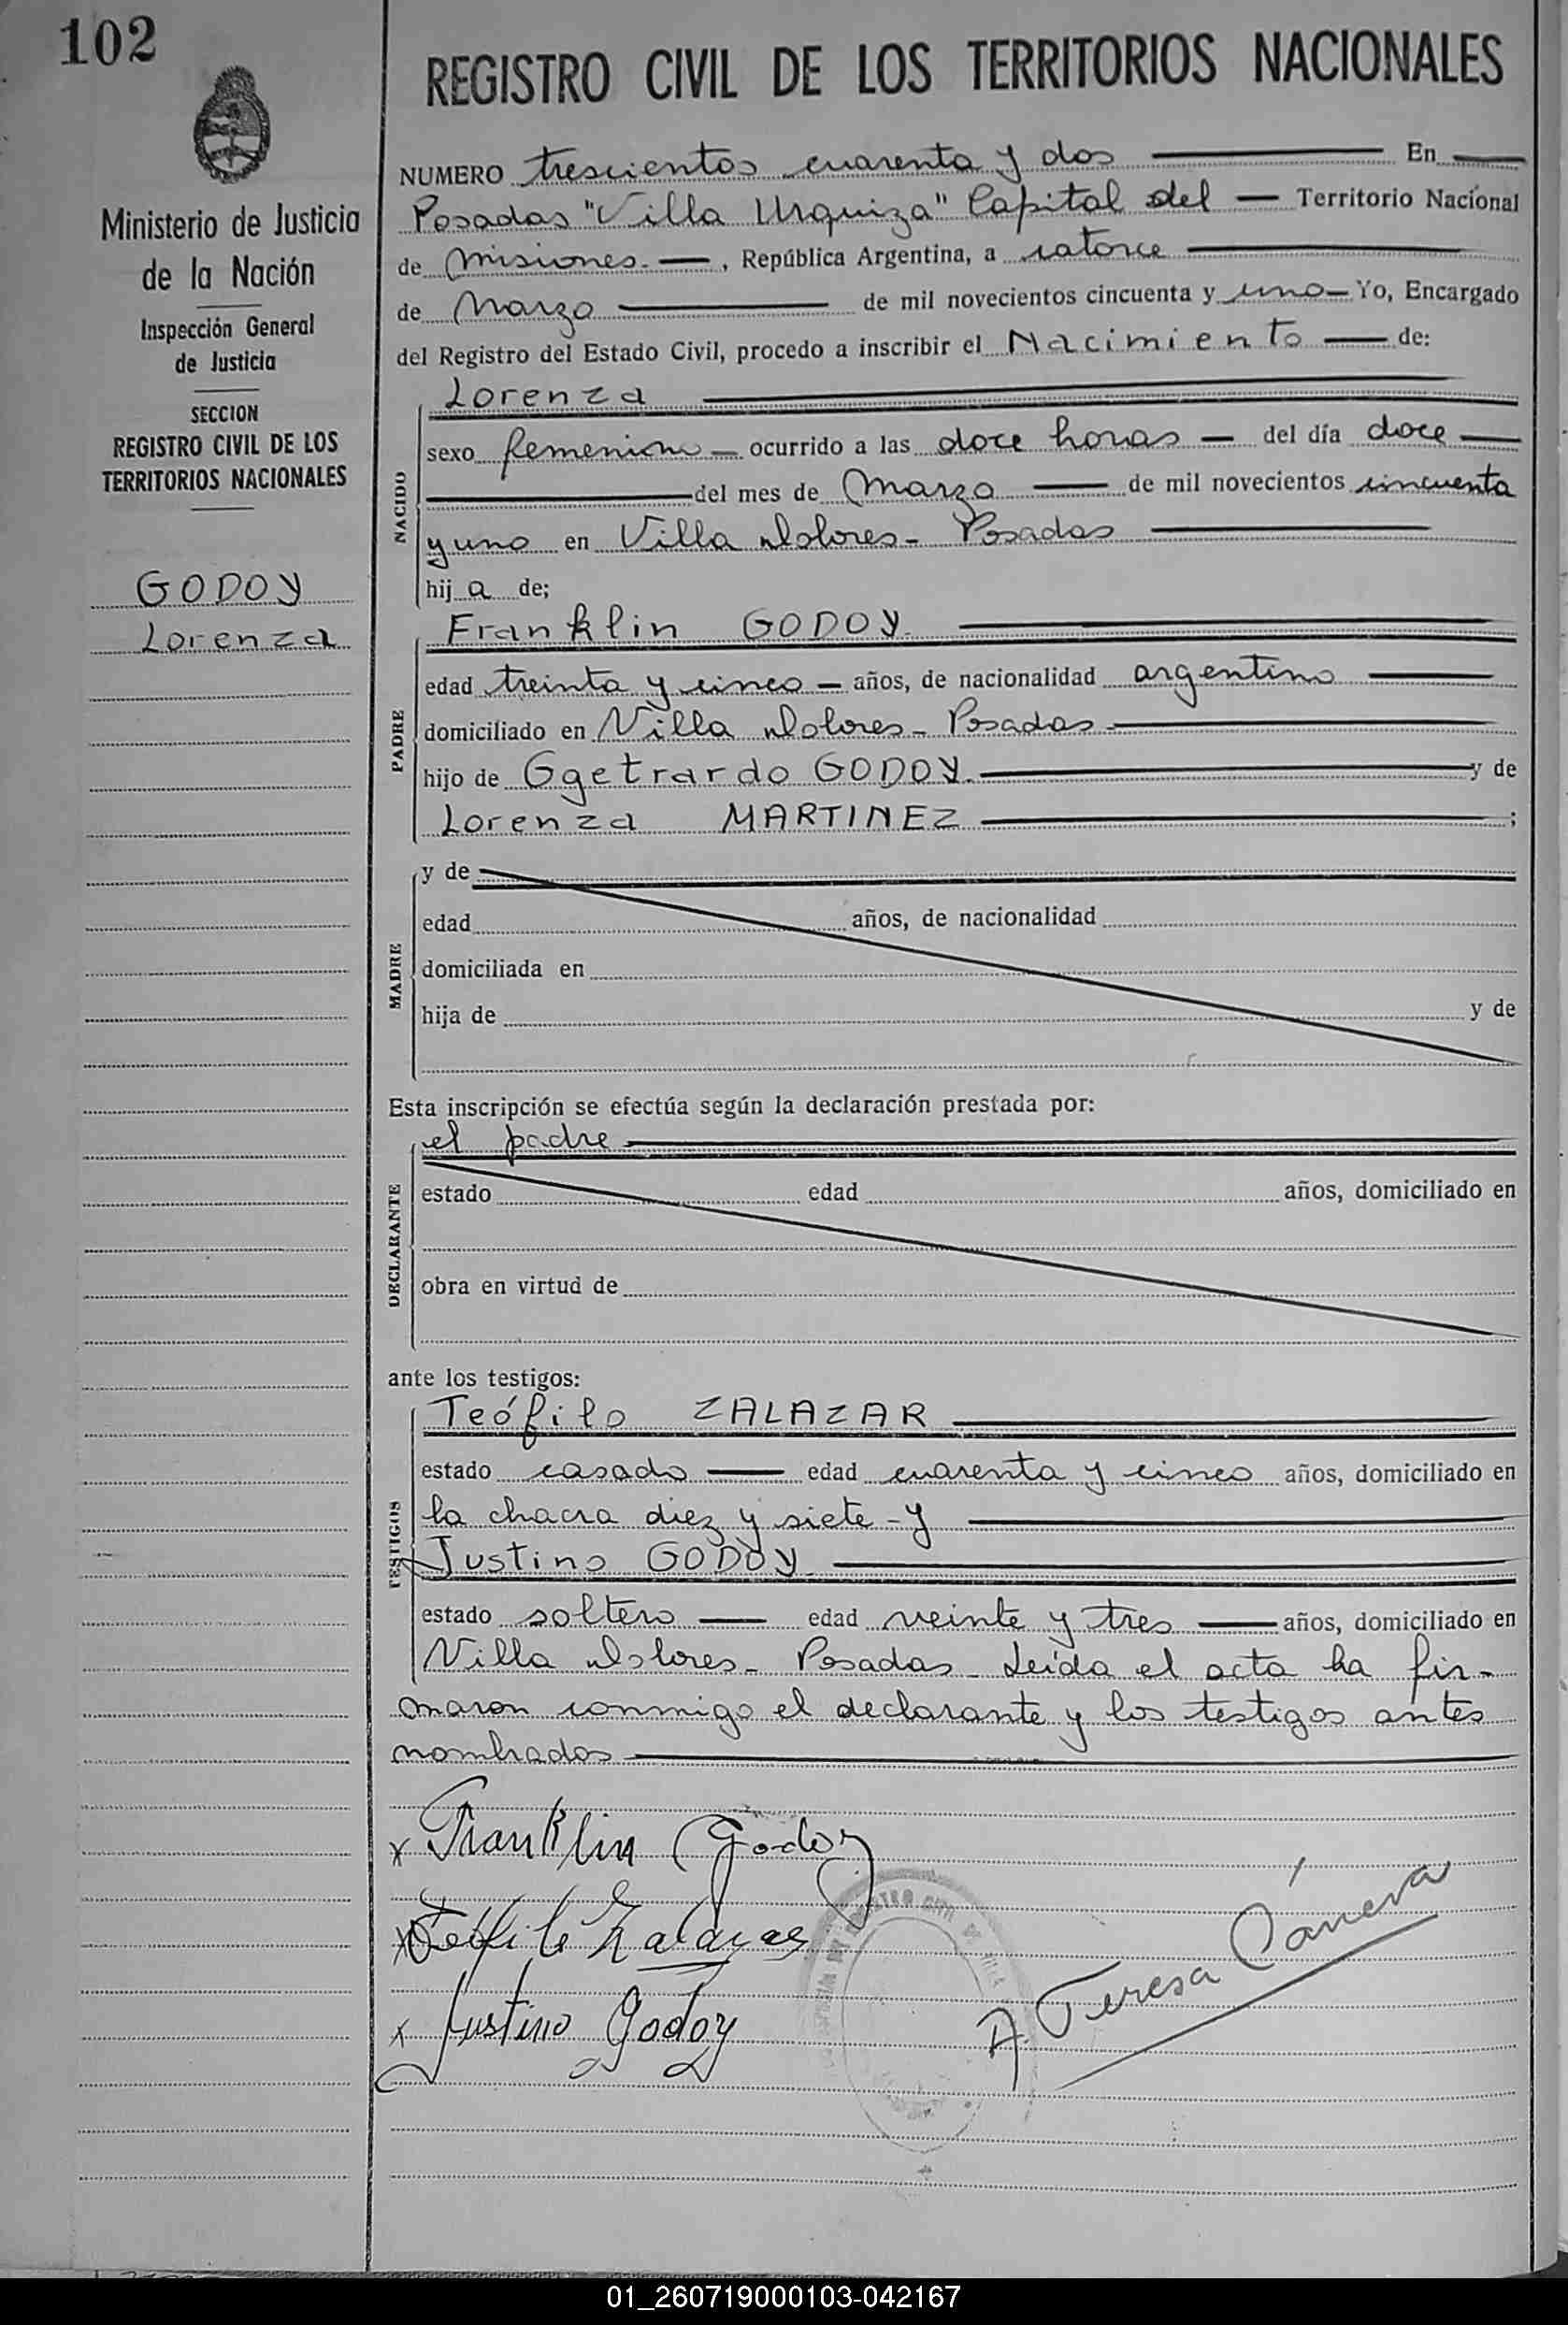 102
Ministerio de Justicia
de la Nación
Inspección General
de Justicia
SECCION
REGISTRO CIVIL DE LOS
TERRITORIOS NACIONALES
GODOY
Lorenza
REGISTRO CIVIL DE LOS TERRITORIOS NACIONALES
NUMERO trescientos cuarenta y dos En
Posadas "Villa Urquiza" Capital del Territorio Nacional
de Misiones. , República Argentina, a catorce
de Marzo de mil novecientos cincuenta y uno Yo, Encargado
del Registro del Estado Civil, procedo a inscribir el Nacimiento de:
Lorenza
NACIDO
sexo femenino ocurrido a las doce horas del día doce
del mes de Marzo de mil novecientos cincuenta
y uno en Villa Dolores - Posadas
hij a de;
Franklin GODOY.
PADRE
edad treinta y cinco años, de nacionalidad argentino
domiciliado en Villa Dolores - Posadas
hijo de Ggetrardo GODOY. y de
Lorenza MARTINEZ ;
MADRE
y de
edad años, de nacionalidad
domiciliada en
hija de y de
Esta inscripción se efectúa según la declaración prestada por:
el padre
DECLARANTE
estado edad años, domiciliado en
obra en virtud de
ante los testigos:
Teófilo ZALAZAR
TESTIGOS
estado casado edad cuarenta y cinco años, domiciliado en
la chacra diez y siete - y
Justino GODOY
estado soltero edad veinte y tres años, domiciliado en
Villa Dolores - Posadas - Leída el acta ha fir-
maron conmigo el declarante y los testigos antes
nombrados
x Franklin Godoy
x Teófilo Zalazar
x Justino Godoy
A. Teresa Cáneva
01_260719000103-042167